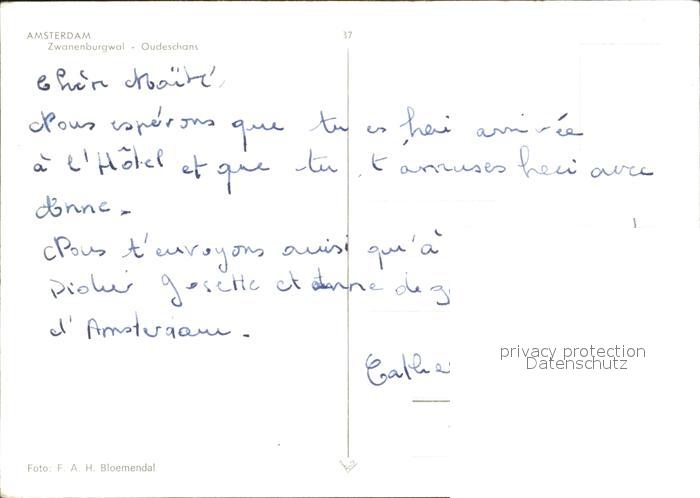 AMSTERDAM
Zwanenburgwal - Oudeschans
37
Chère Maïté,
Nous espérons que tu es bien arrivée
à l'Hôtel et que tu t'amuses bien avec
Anne.
Nous t'envoyons ainsi qu'à
Didier Josette et Anne de g
d'Amsterdam.
Cathe
privacy protection
Datenschutz
Foto: F. A. H. Bloemendal